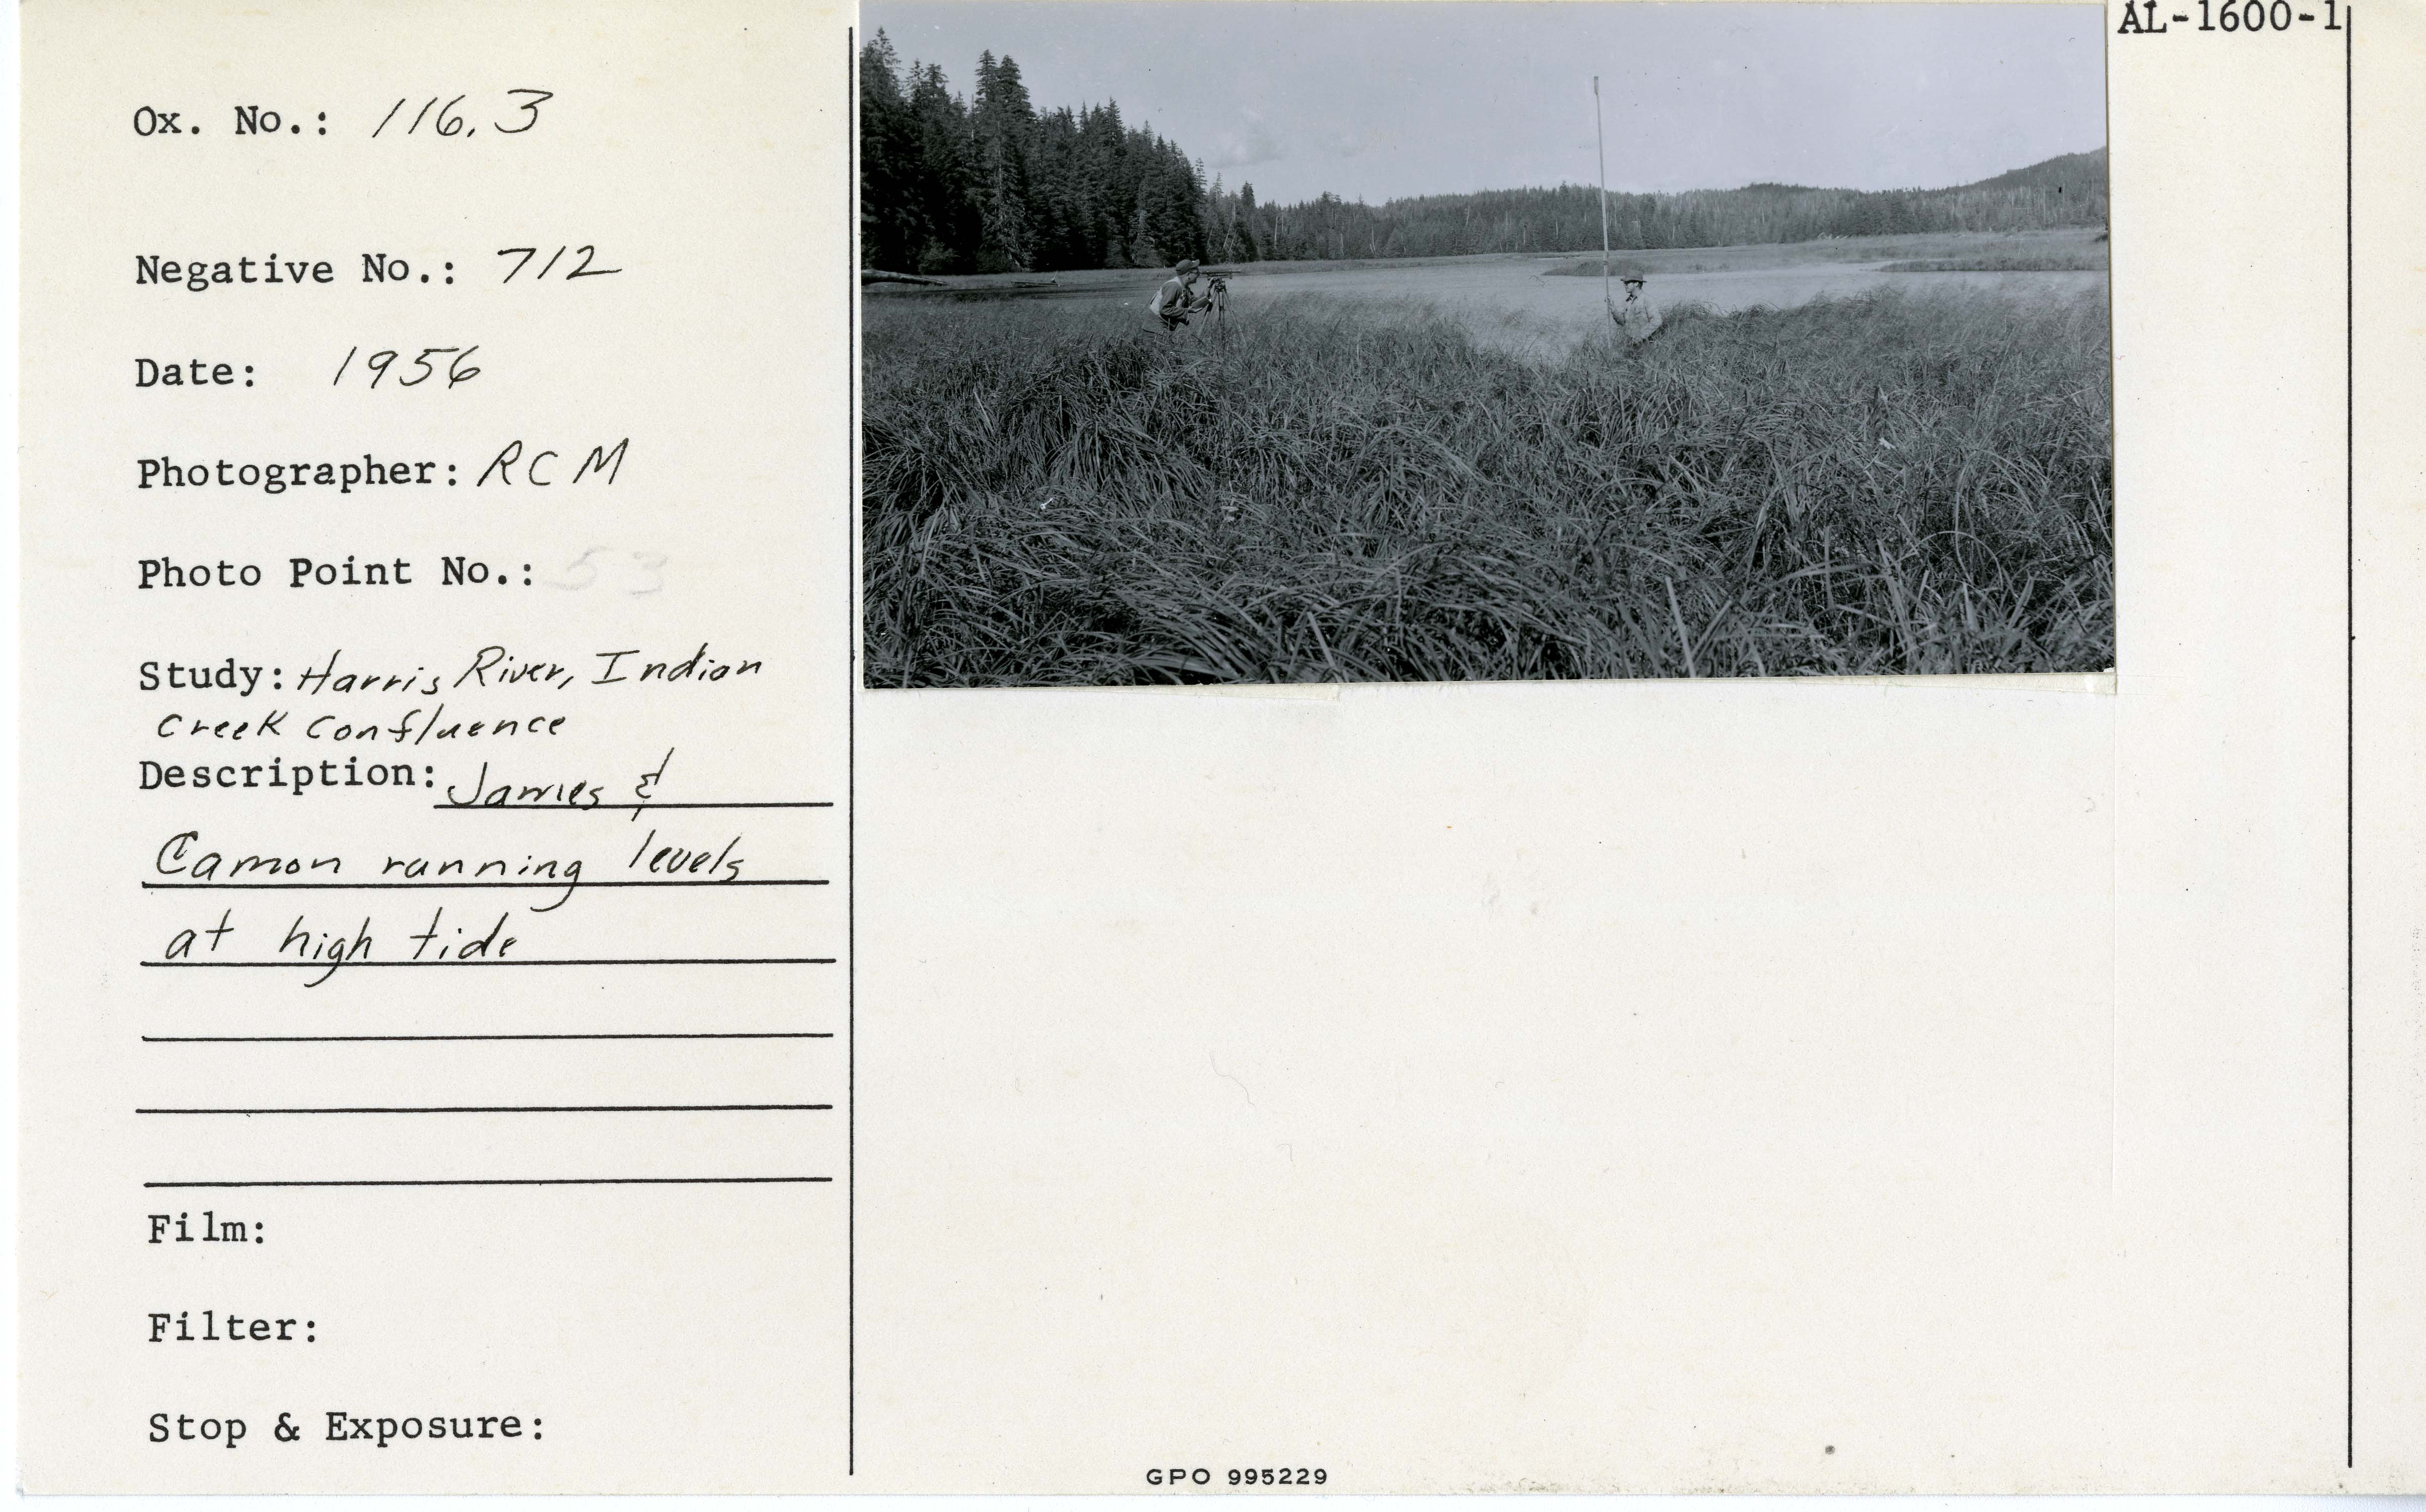 AL-1600-1
Ox. No.: 116.3
Negative No.: 712
Date: 1956
Photographer: RCM
Photo Point No.: 53
Study: Harris River, Indian
Creek Confluence
Description: James &
Camon running levels
at high tide
Film:
Filter:
Stop & Exposure:
GPO 995229